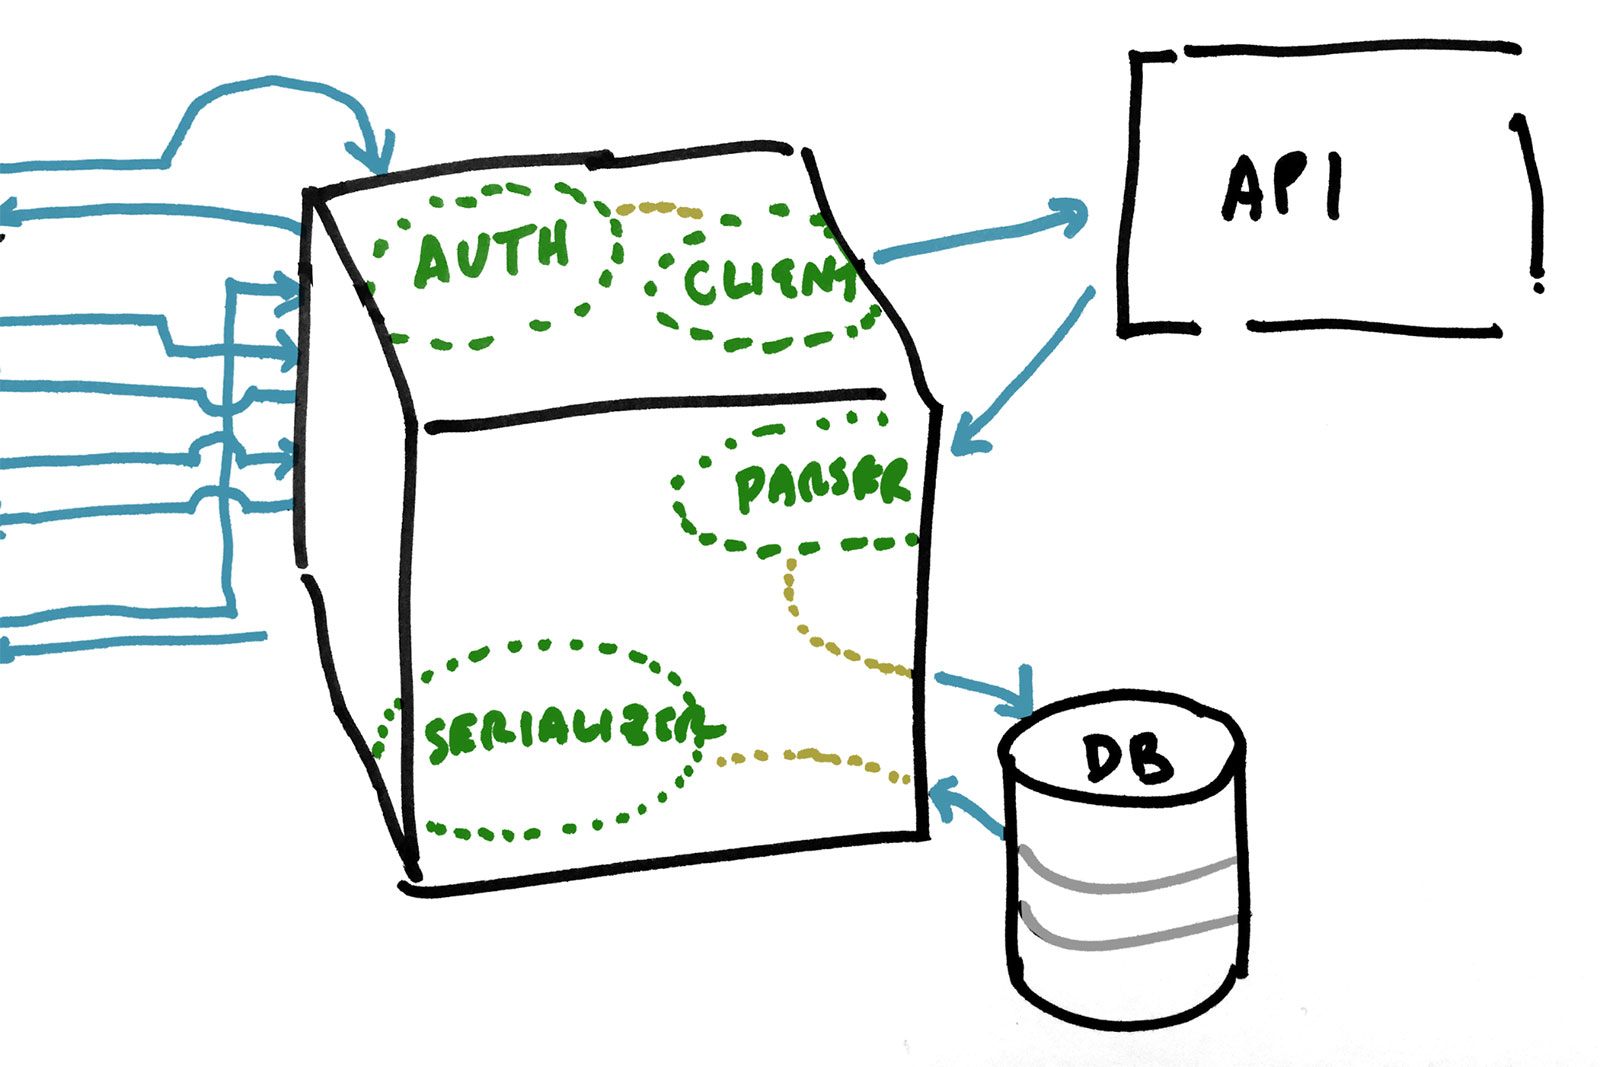 API
AUTH
CLIENT
PARSER
SERIALIZER
DB